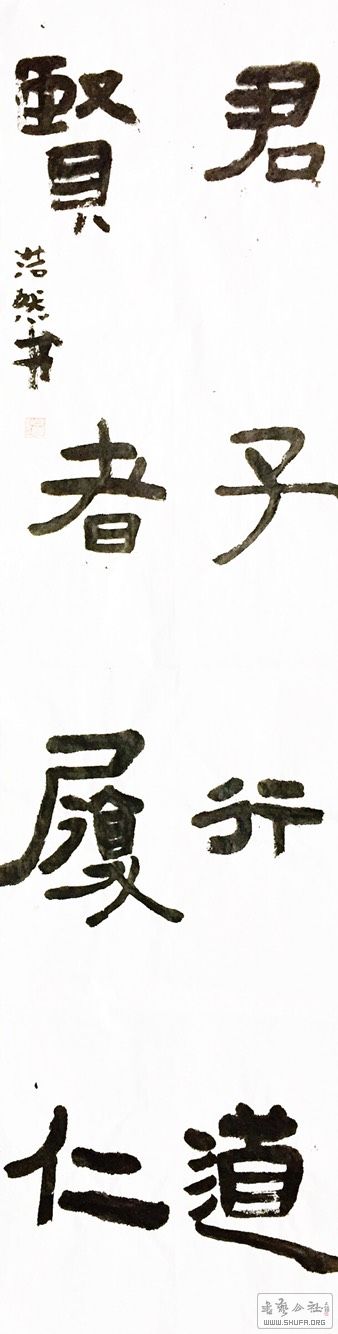 君子行道
賢者履仁
浩然书
書藝公社
WWW.SHUFA.ORG